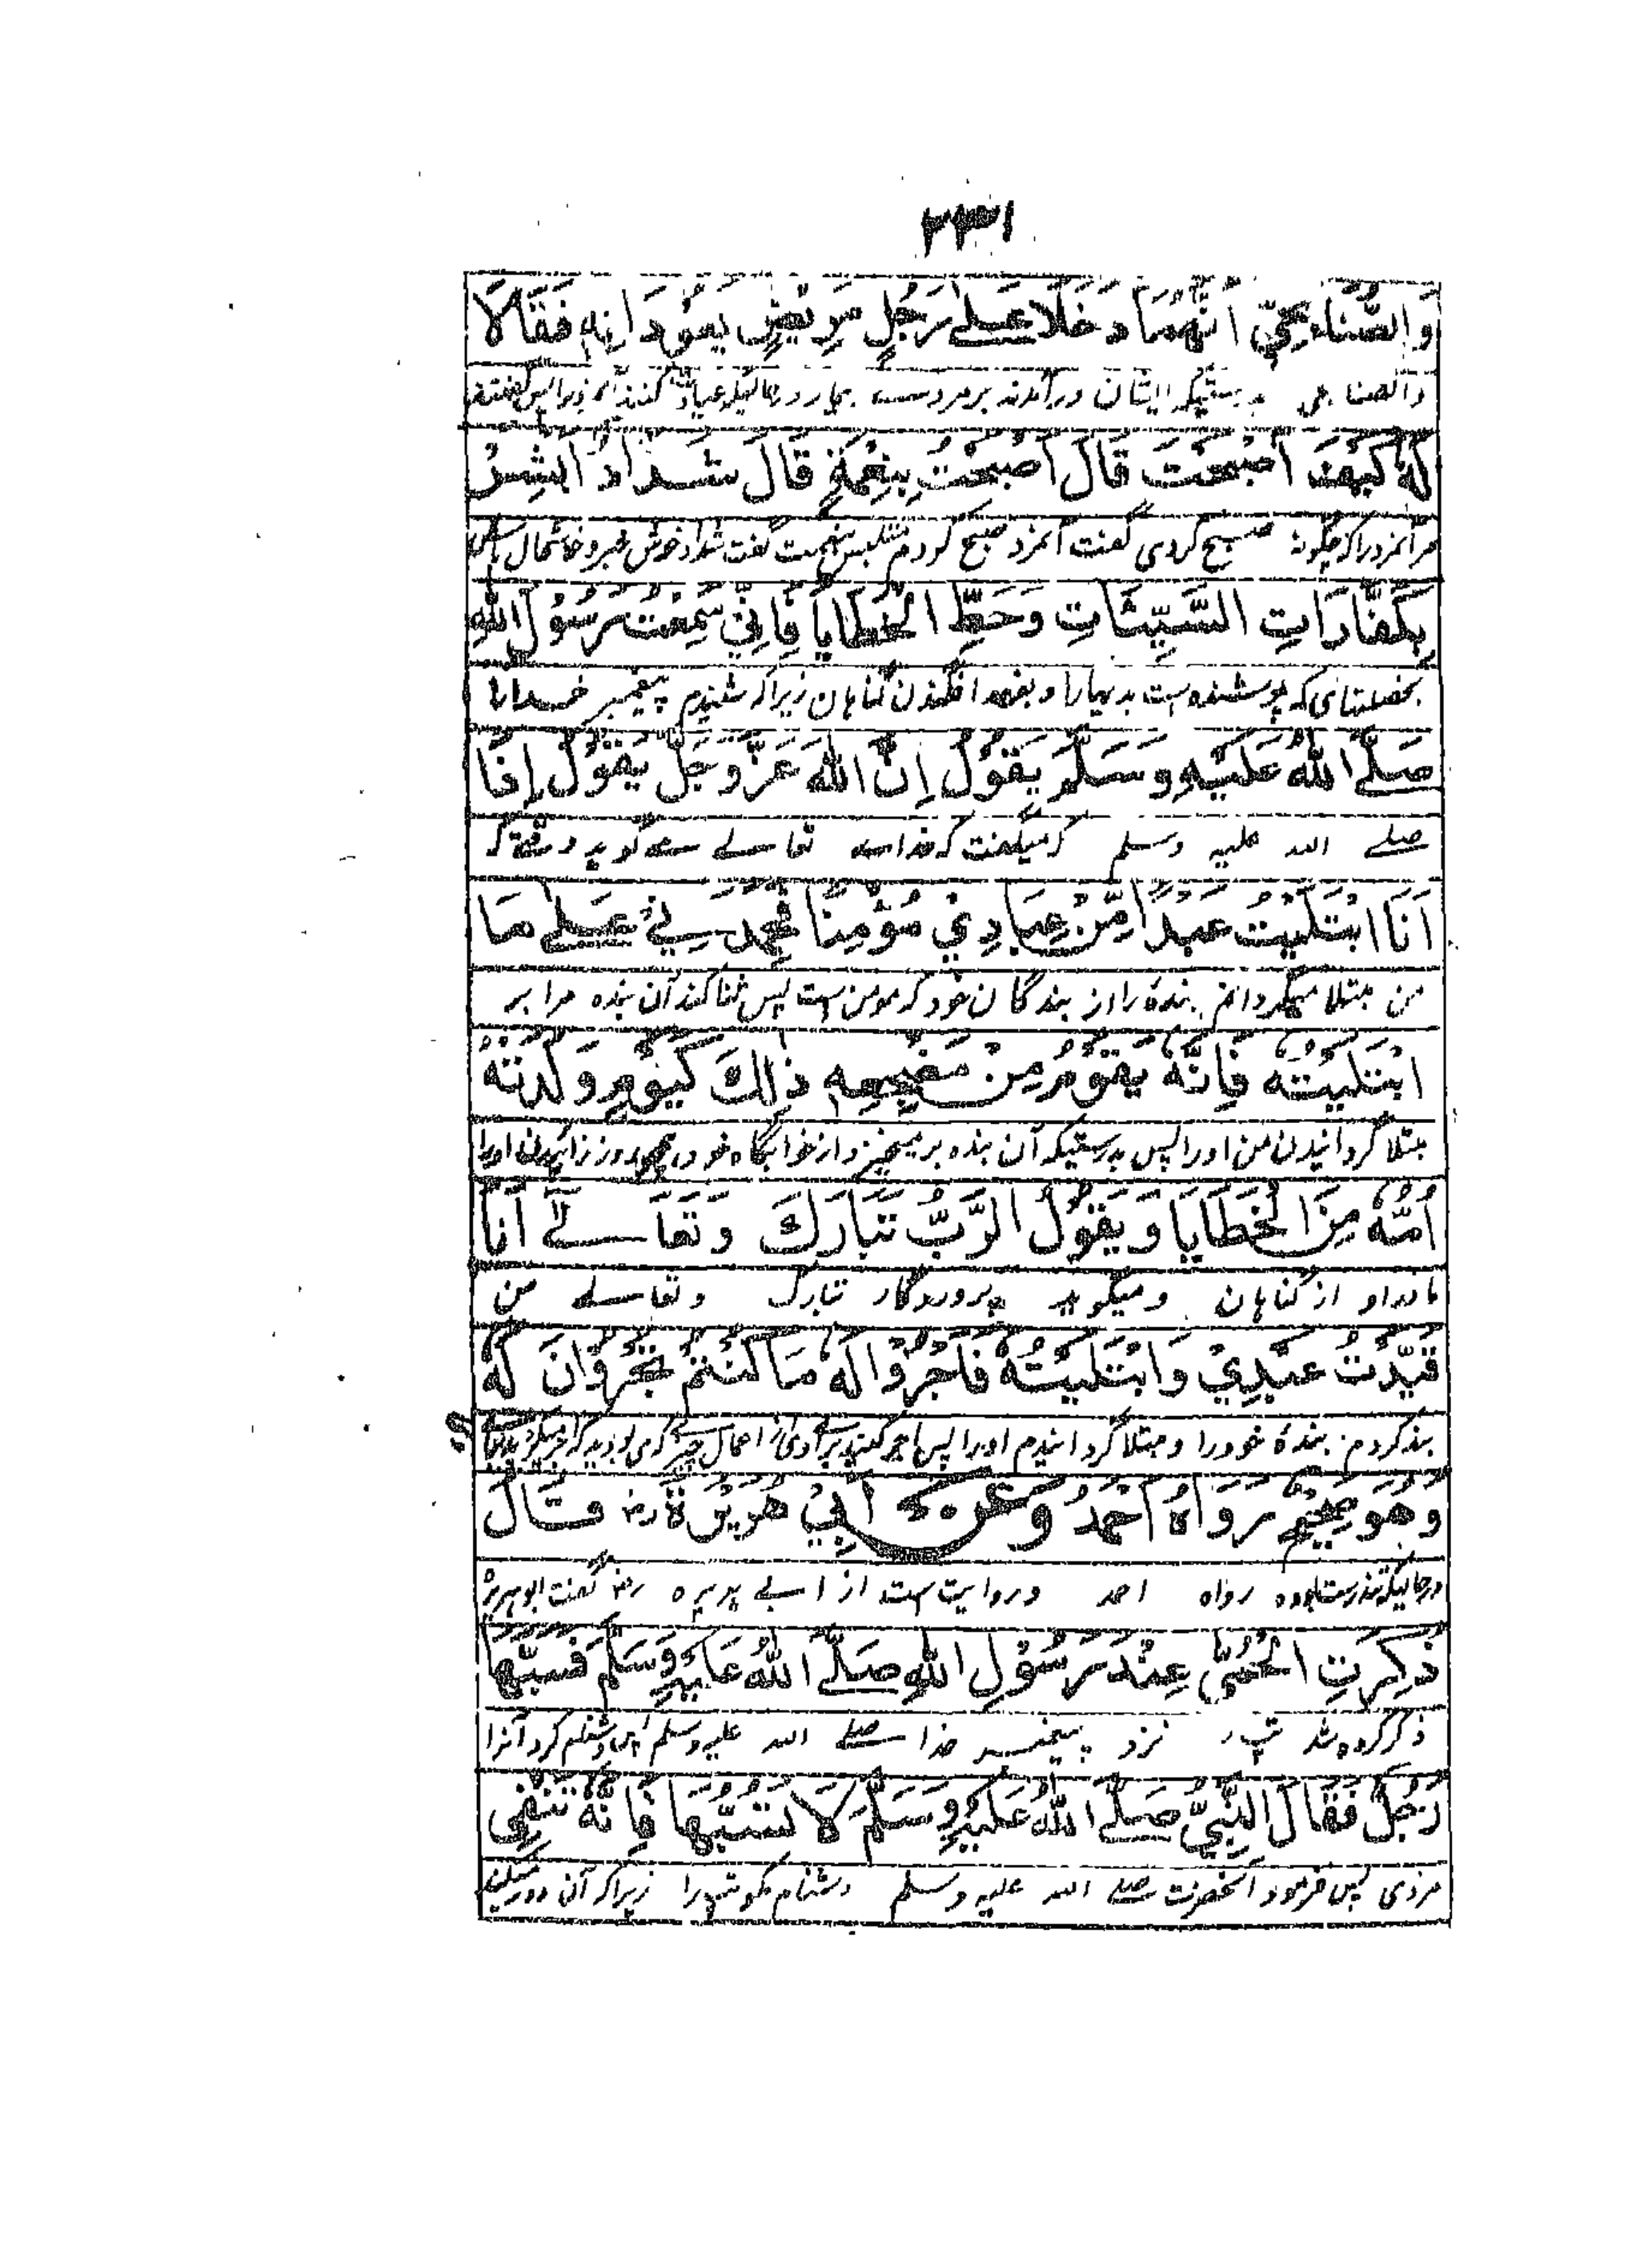 ۲۳۱
وَالصُّنَابِحِيِّ اَنَّهُمَا دَخَلَا عَلٰى رَجُلٍ مَرِيْضٍ يَعُوْدَانِهِ فَقَالَا
والصنابحی بدرستیکہ ایشان درآمدند بر مردے بیمار درحالیکہ عیادت کنند پس گفتند
لَهٗ كَيْفَ اَصْبَحْتَ قَالَ اَصْبَحْتُ بِنِعْمَةٍ قَالَ شَدَّادُ اَبْشِرْ
مر آنمرد را کہ چگونہ صبح کردی گفت آنمرد صبح کردم متلبس بنعمت گفت شداد خوش خبر و خوشحال باش
بِكَفَّارَاتِ السَّيِّئَاتِ وَحَطِّ الْخَطَايَا فَاِنِّيْ سَمِعْتُ رَسُوْلَ اللّٰهِ
بخصلتهای کہ پوشنده است بدیهارا و افکندن گناہان زیراکہ شنیدم پیغمبر خدارا
صَلَّى اللّٰهُ عَلَيْهِ وَسَلَّمَ يَقُوْلُ اِنَّ اللّٰهَ عَزَّ وَجَلَّ يَقُوْلُ اِذَا
صلے اللہ علیہ وسلم کہ میگفت کہ خداے تعالے مے گوید وقتیکہ
اَنَا ابْتَلَيْتُ عَبْدًا مِّنْ عِبَادِيْ مُؤْمِنًا فَحَمِدَنِيْ عَلٰى مَا
من مبتلا میگردانم بندۂ را از بندگان خود کہ مومن است پس ثنا کند آن بندہ مرا بر
ابْتَلَيْتُهٗ فَاِنَّهٗ يَقُوْمُ مِنْ مَضْجَعِهٖ ذٰلِكَ كَيَوْمِ وَلَدَتْهُ
مبتلا گردانیدن من اورا پس بدرستیکہ آن بندہ بر میخیزد از خوابگاہ خود ہمچو روز زائیدن اورا
اُمُّهٗ مِنَ الْخَطَايَا وَيَقُوْلُ الرَّبُّ تَبَارَكَ وَتَعَالٰى اَنَا
مادر او از گناہان و میگوید پروردگار تبارک وتعالے من
قَيَّدْتُ عَبْدِيْ وَابْتَلَيْتُهٗ فَاَجْرُوْا لَهٗ مَا كُنْتُمْ تُجْرُوْنَ لَهٗ
بند کردم بندۂ خود را و مبتلا گردانیدم اورا پس اجر کنید براے وی از اعمال چیزے کہ می بودید کہ
وَهُوَ صَحِيْحٌ رَوَاهُ اَحْمَدُ وَعَنْ اَبِيْ هُرَيْرَةَ رض قَالَ
درحالیکہ تندرست بودہ رواہ احمد وروایت ست از ابے ہریرہ رض گفت ابوہریرہ
ذُكِرَتِ الْحُمّٰى عِنْدَ رَسُوْلِ اللّٰهِ صَلَّى اللّٰهُ عَلَيْهِ وَسَلَّمَ فَسَبَّهَا
ذکر کردہ شد تپ نزد پیغمبر خدا صلے اللہ علیہ وسلم پس دشنام کرد آنرا
رَجُلٌ فَقَالَ النَّبِيُّ صَلَّى اللّٰهُ عَلَيْهِ وَسَلَّمَ لَا تَسُبَّهَا فَاِنَّهَا تَنْفِى
مردی پس فرمود آنحضرت صلے اللہ علیہ وسلم دشنام مگو تپ را زیراکہ آن دور میکند